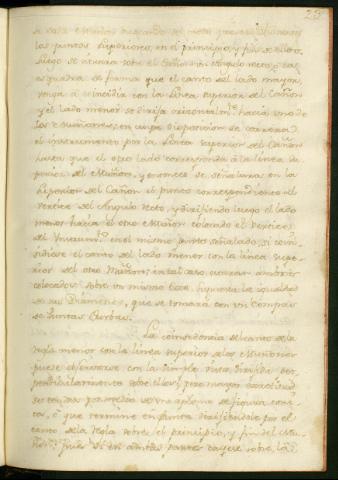 25
los puntos superiores, en el principio, y fin de ellos,
luego se sobre el Cañon el Angulo recto, ò la
esquadra de forma que el canto del lado mayor
venga à coincidir con la linea superior del Cañon
y el lado menor se dirija orizontalm.te hacia uno de
los Muñones, en cuya disposicion se correrà
el instrumento por la linea superior del Cañon
hasta que el otro lado corresponda à la linea su-
perior del Muñon, y entonces se señalarà en la
superior del Cañon el punto correspondiente al
vertice del Angulo recto, y dirijiendo luego el lado
menor hacia el otro Muñon colocado el vertice
del Instrum.to en el mismo punto señalado, si coin-
cidiese el canto del lado menor con la linea supe-
rior del otro Muñon; en tal caso, estaràn ambos
colocados sobre un mismo exe, supuesta la igualdad
de sus Diametros, que se tomarà con un Compas
de Puntas Curbas.
La coincidencia del canto de la
regla menor con la linea superior de los Muñones
puede observarse con la simple vista per-
pendicularmente sobre ellos; pero mayor exactitud
se con una plomada de figura coni-
ca, ò que termine en punta dirijiendola por el
canto de la regla sobre el principio, y fin del Mu-
ñon; pues si en ambas partes cayese sobre la